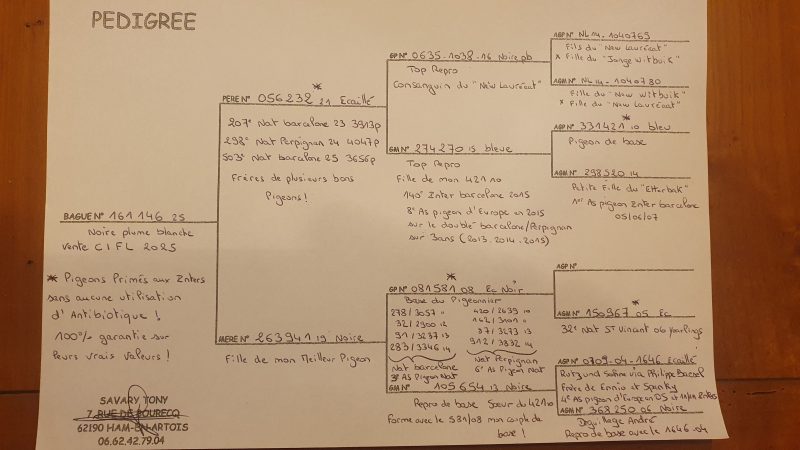 PEDIGREE
BAGUE N° 161 146 25
Noire plume blanche
Vente CIFL 2025
* Pigeons Primés aux Inters
sans aucune utilisation
d'Antibiotique !
100% garantie sur
leurs vrais valeurs !
SAVARY TONY
7, RUE DE BOURECQ
62190 HAM-EN-ARTOIS
06.62.42.79.04
*
PERE N° 056232 21 Ecaillé
207° Nat barcelone 23 3913p
298° Nat Perpignan 24 4047p
503° Nat barcelone 25 3656p
Frères de plusieurs bons
Pigeons !
MERE N° 263941 19 Noire
Fille de mon Meilleur Pigeon
GP N° 0635-1038-16 Noire pb
Top Repro
Consanguin du "New Lauréat"
GM N° 274270 15 bleue
Top Repro
Fille de mon 421 10
140° Inter barcelone 2015
8° As pigeon d'Europe en 2015
sur le double barcelone/Perpignan
sur 3ans (2013-2014-2015)
*
GP N° 081581 08 Ec Noir
Base du Pigeonnier
278/3057 11 420/2639 10
32/2900 12 162/3101 11
91/3237 13 37/3273 13
283/3346 14 312/3832 14
Nat barcelone Nat Perpignan
3° As Pigeon Nat 6° As Pigeon Nat
GM N° 105654 13 Noire
Repro de base Sœur du 421 10
Forme avec le 581/08 mon couple de
base !
AGP N° NL14-1040765
Fils du "New Lauréat"
x Fille du "Jonge Witbuik"
AGM N° NL14-1040780
Fille du "New Witbuik"
x Fille du "New Lauréat"
*
AGP N° 331421 10 bleu
Pigeon de base
AGM N° 298520 14
Petite Fille du "Etterbak"
1er As pigeon Inter barcelone
05/06/07
AGP N°
*
AGM N° 150967 05 Ec
32° Nat St Vincent 06 yearlings
AGP N° 0709-04-1646 Ecaillé
via Philippe
Frère de Ennio et Sparky
4° As pigeon d'Europe
AGM N° 368250 06 Noire
André
Repro de base avec le 1646-04